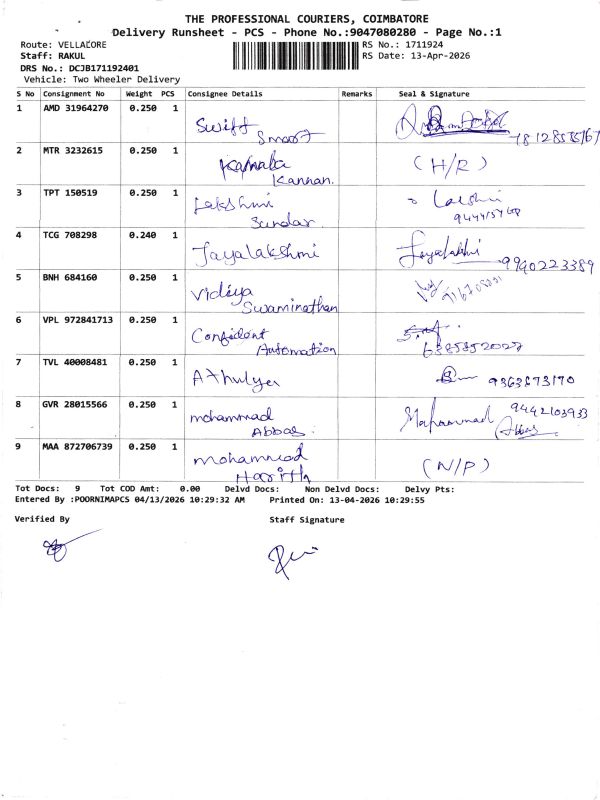 THE PROFESSIONAL COURIERS, COIMBATORE
Delivery Runsheet - PCS - Phone No.:9047080280 - Page No.:1
Route: VELLALORE
RS No.: 1711924
Staff: RAKUL
RS Date: 13-Apr-2026
DRS No.: DCJB171192401
Vehicle: Two Wheeler Delivery
S No Consignment No Weight PCS Consignee Details Remarks Seal & Signature
1 AMD 31964270 0.250 1 Swift Smart
2 MTR 3232615 0.250 1 Kamala Kannan. (H/R)
3 TPT 150519 0.250 1 Lakshmi Sundar.
4 TCG 708298 0.240 1 Jayalakshmi Jayalakhmi 9940223389
5 BNH 684160 0.250 1 Vidhya Swaminathan
6 VPL 972841713 0.250 1 Confident Automation 6385852027
7 TVL 40008481 0.250 1 Athulya 9363873170
8 GVR 28015566 0.250 1 mohammad Abbas. Mohammad Abbas 9442103933
9 MAA 872706739 0.250 1 mohammad Harith (N/P)
Tot Docs: 9 Tot COD Amt: 0.00 Delvd Docs: Non Delvd Docs: Delvy Pts:
Entered By :POORNIMAPCS 04/13/2026 10:29:32 AM Printed On: 13-04-2026 10:29:55
Verified By Staff Signature